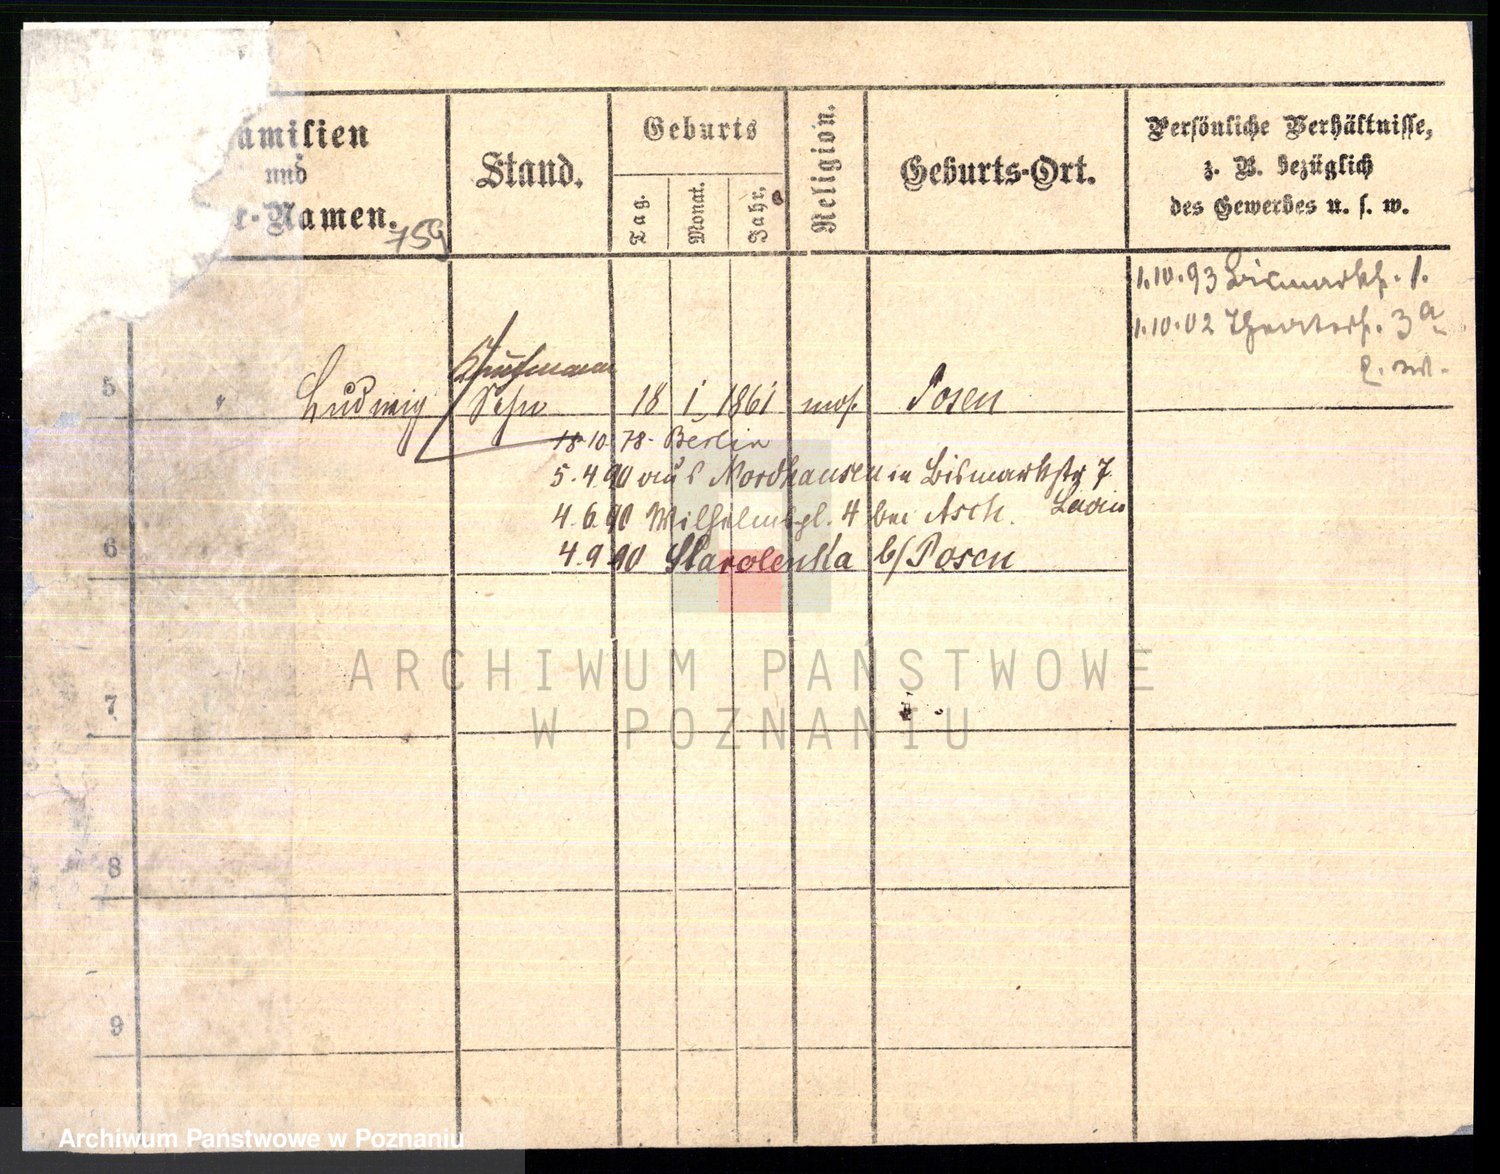 amilien
und
r-Namen.
759
Stand.
Geburts
Tag.
Monat.
Jahr.
Religion.
Geburts-Ort.
Persönliche Verhältnisse,
z. B. bezüglich
des Gewerbes u. s. w.
1.10.93 Bismarckst. 1.
1.10.02 Theaterst. 3a
Kaufmann
5 " Ludwig Sohn 18 1 1861 mos. Posen
18.10.78. Berlin
5.4.90 aus Nordhausen in Bismarckstr 7
4.6.90 Wilhelmspl. 4 bei Asch.
6 4.9.90 Starolenka b/Posen
7
8
9
ARCHIWUM PAŃSTWOWE
W POZNANIU
Archiwum Państwowe w Poznaniu